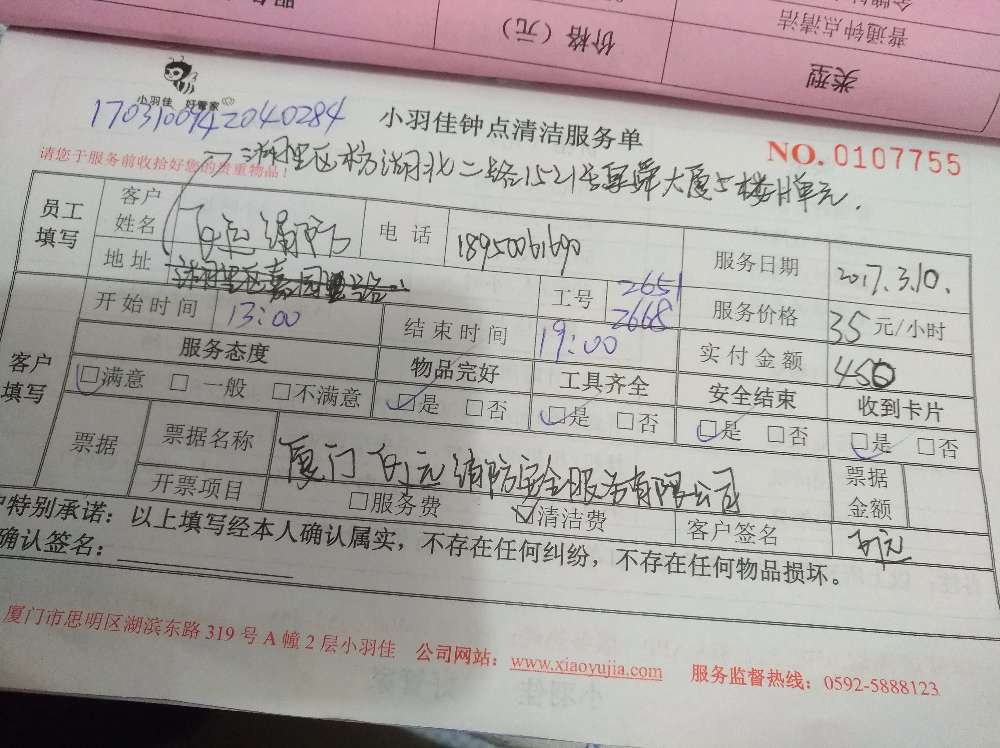 类型
价格（元）
普通钟点清洁
小羽佳 好管家
170310094204 0284
小羽佳钟点清洁服务单
NO. 0107755
请您于服务前收拾好您的贵重物品！
湖里区枋湖北二路1521号 大厦5楼 单元.
员工填写
客户姓名
电 话 18950061690
服务日期 2017.3.10.
地 址
工号 2651
2668
服务价格 35 元/小时
客户填写
开始时间 13:00
结束时间 19:00
实付金额 450
服务态度 物品完好 工具齐全 安全结束 收到卡片
□满意 □一般 □不满意 □是 □否 □是 □否 □是 □否 □是 □否
票据 票据名称 厦门 消防安全服务有限公司
票据金额
开票项目 □服务费 □清洁费 客户签名
特别承诺：以上填写经本人确认属实，不存在任何纠纷，不存在任何物品损坏。
确认签名：
厦门市思明区湖滨东路 319 号 A 幢 2 层小羽佳 公司网站：www.xiaoyujia.com 服务监督热线：0592-5888123